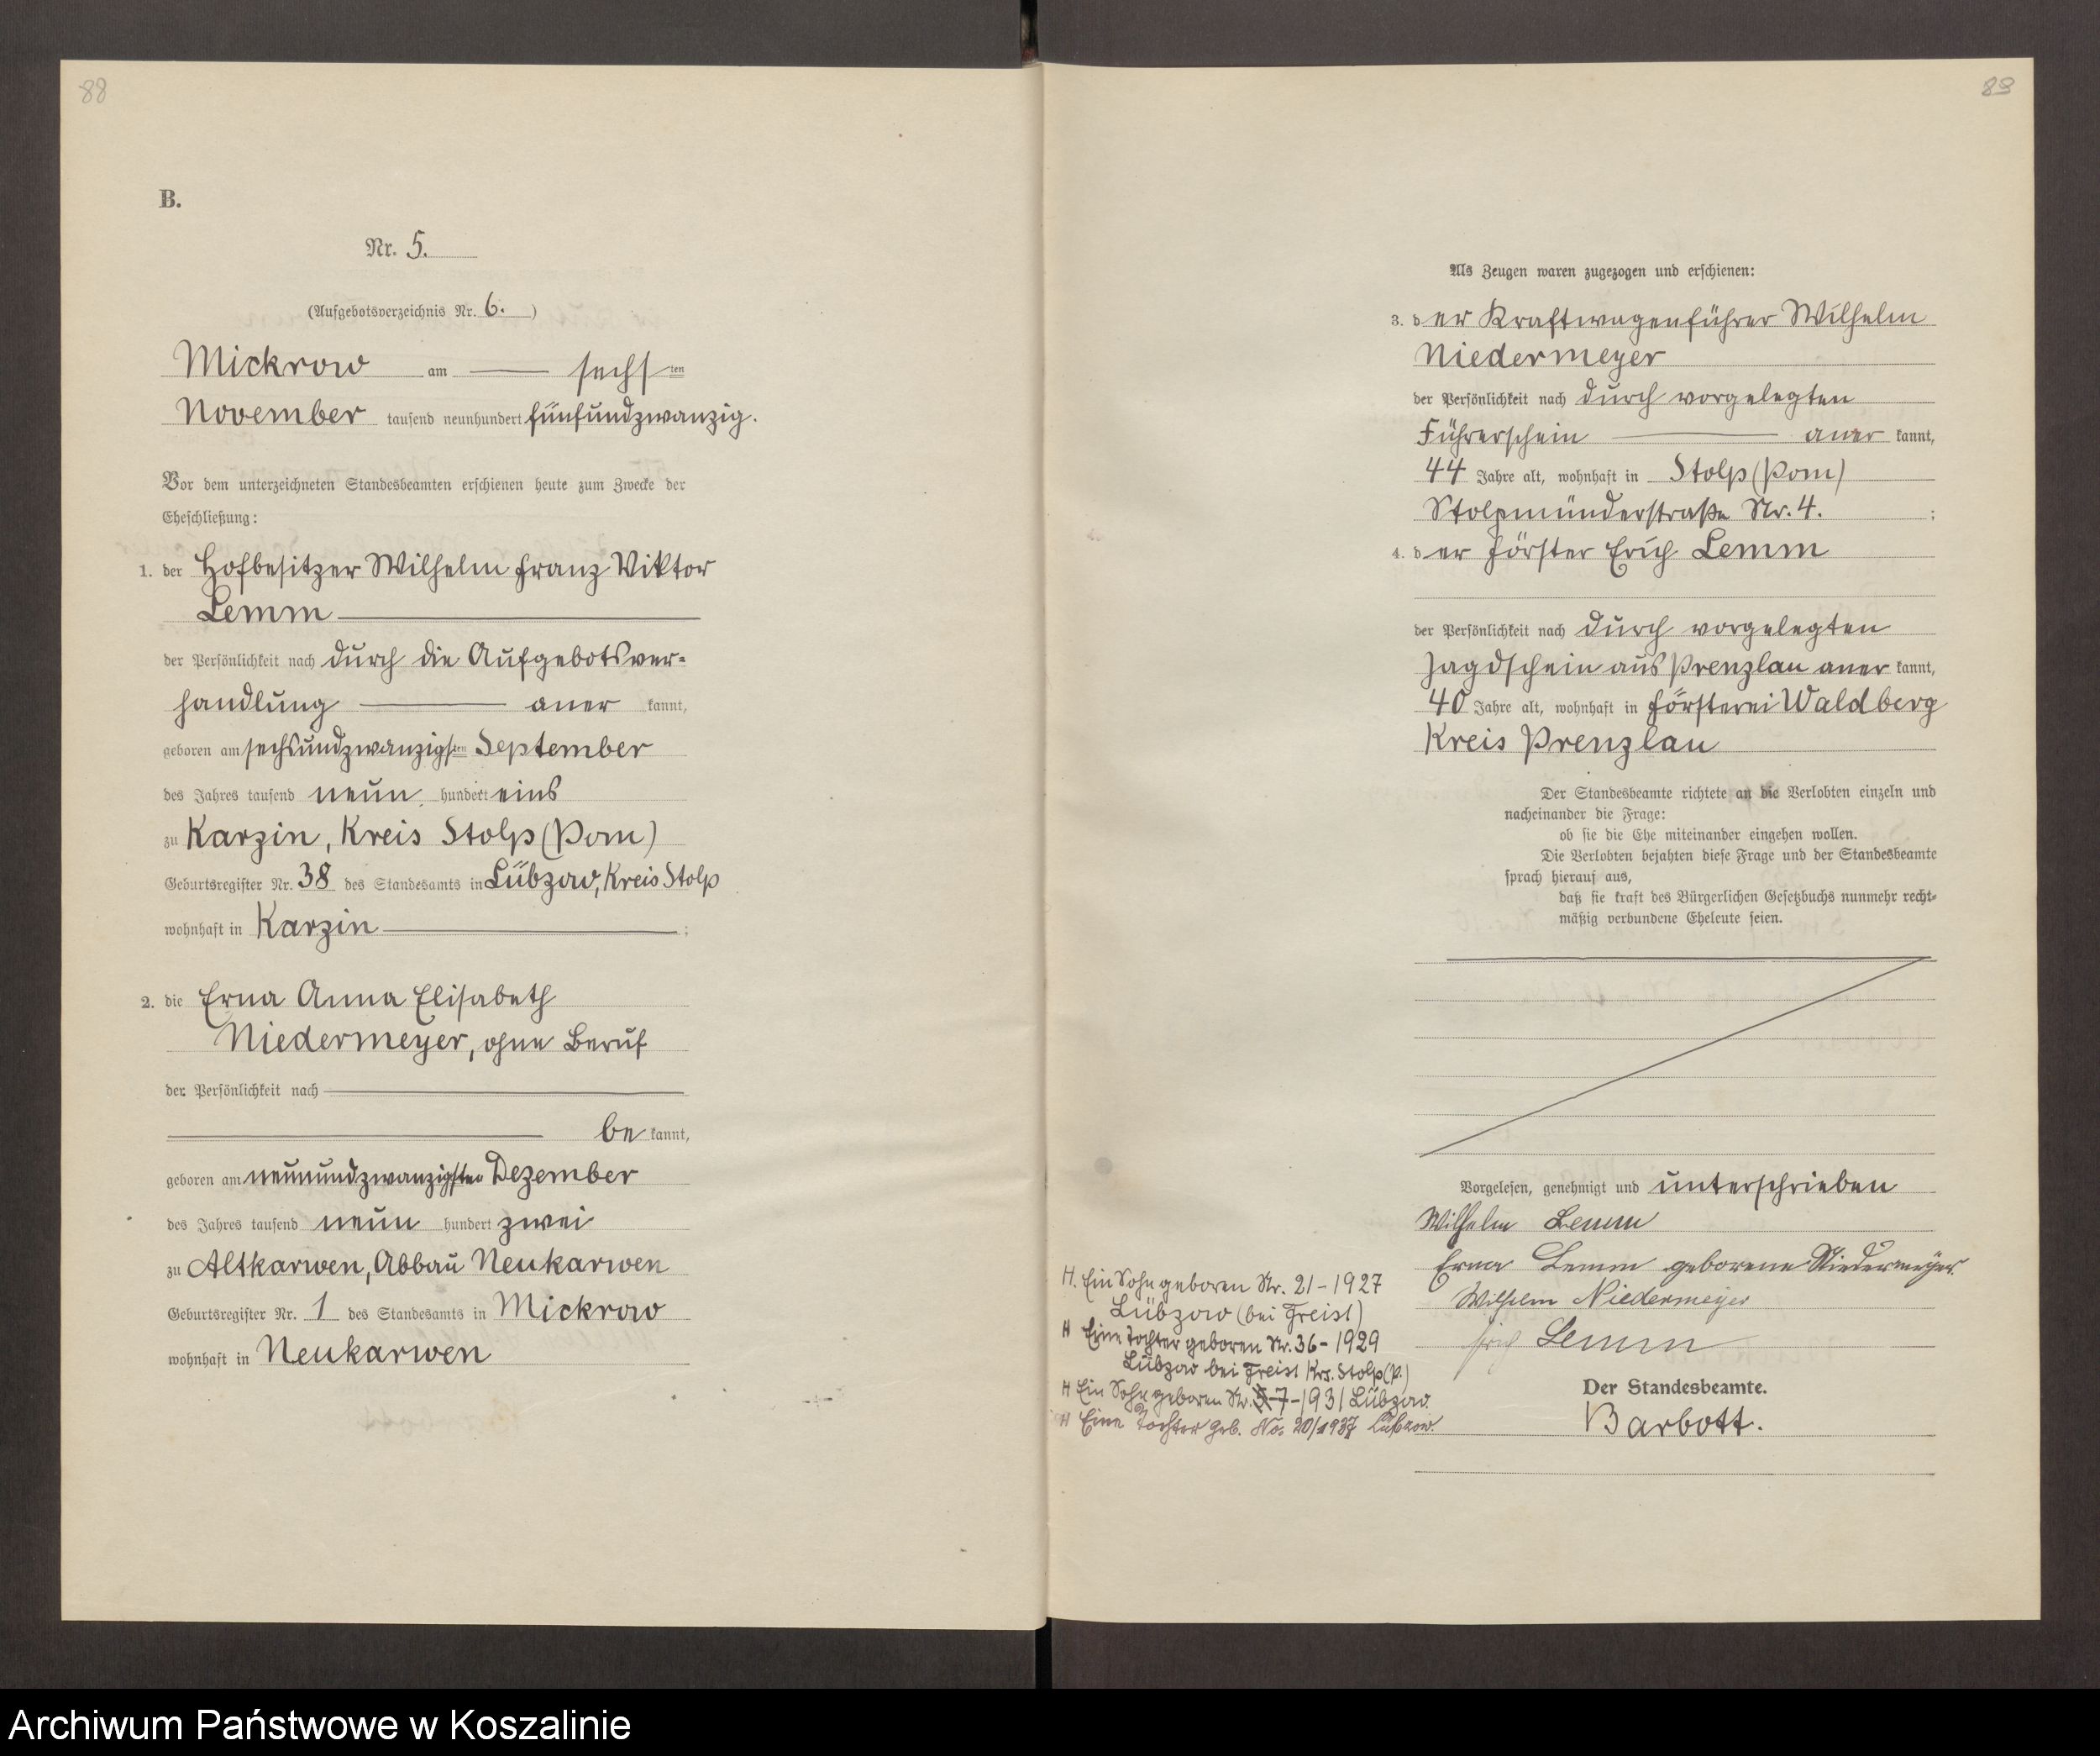 88
B.
Nr. 5.
(Aufgebotsverzeichnis Nr. 6. )
Mickrow am sechsten
November tausend neunhundert fünfundzwanzig.
Vor dem unterzeichneten Standesbeamten erschienen heute zum Zwecke der
Eheschließung:
1. der Hofbesitzer Wilhelm Franz Viktor
Lemm
der Persönlichkeit nach durch die Aufgebotsver-
handlung aner kannt,
geboren am sechsundzwanzigsten September
des Jahres tausend neun hundert eins
zu Karzin, Kreis Stolp (Pom)
Geburtsregister Nr. 38 des Standesamts in Lübzow, Kreis Stolp
wohnhaft in Karzin ;
2. die Erna Anna Elisabeth
Niedermeyer, ohne Beruf
der Persönlichkeit nach
be kannt,
geboren am neunundzwanzigsten Dezember
des Jahres tausend neun hundert zwei
zu Altkarwen, Abbau Neukarwen
Geburtsregister Nr. 1 des Standesamts in Mickrow
wohnhaft in Neukarwen
89
Als Zeugen waren zugezogen und erschienen:
3. der Kraftwagenführer Wilhelm
Niedermeyer
der Persönlichkeit nach durch vorgelegten
Führerschein aner kannt,
44 Jahre alt, wohnhaft in Stolp (Pom)
Stolpmünderstraße Nr. 4. ;
4. der Förster Erich Lemm
der Persönlichkeit nach durch vorgelegten
Jagdschein aus Prenzlau aner kannt,
40 Jahre alt, wohnhaft in Försterei Waldberg
Kreis Prenzlau
Der Standesbeamte richtete an die Verlobten einzeln und
nacheinander die Frage:
ob sie die Ehe miteinander eingehen wollen.
Die Verlobten bejahten diese Frage und der Standesbeamte
sprach hierauf aus,
daß sie kraft des Bürgerlichen Gesetzbuchs nunmehr recht-
mäßig verbundene Eheleute seien.
Vorgelesen, genehmigt und unterschrieben
Wilhelm Lemm
Erna Lemm geborene Niedermeyer.
Wilhelm Niedermeyer
Erich Lemm
Der Standesbeamte.
Barbott.
H. Ein Sohn geboren Nr. 21-1927
Lübzow (bei Freist)
H Eine Tochter geboren Nr. 36-1929
Lübzow bei Freist Krs. Stolp (P.)
H Ein Sohn geboren Nr. 7-1931 Lübzow.
H Eine Tochter geb. No. 20/1937 Lübzow.
Archiwum Państwowe w Koszalinie